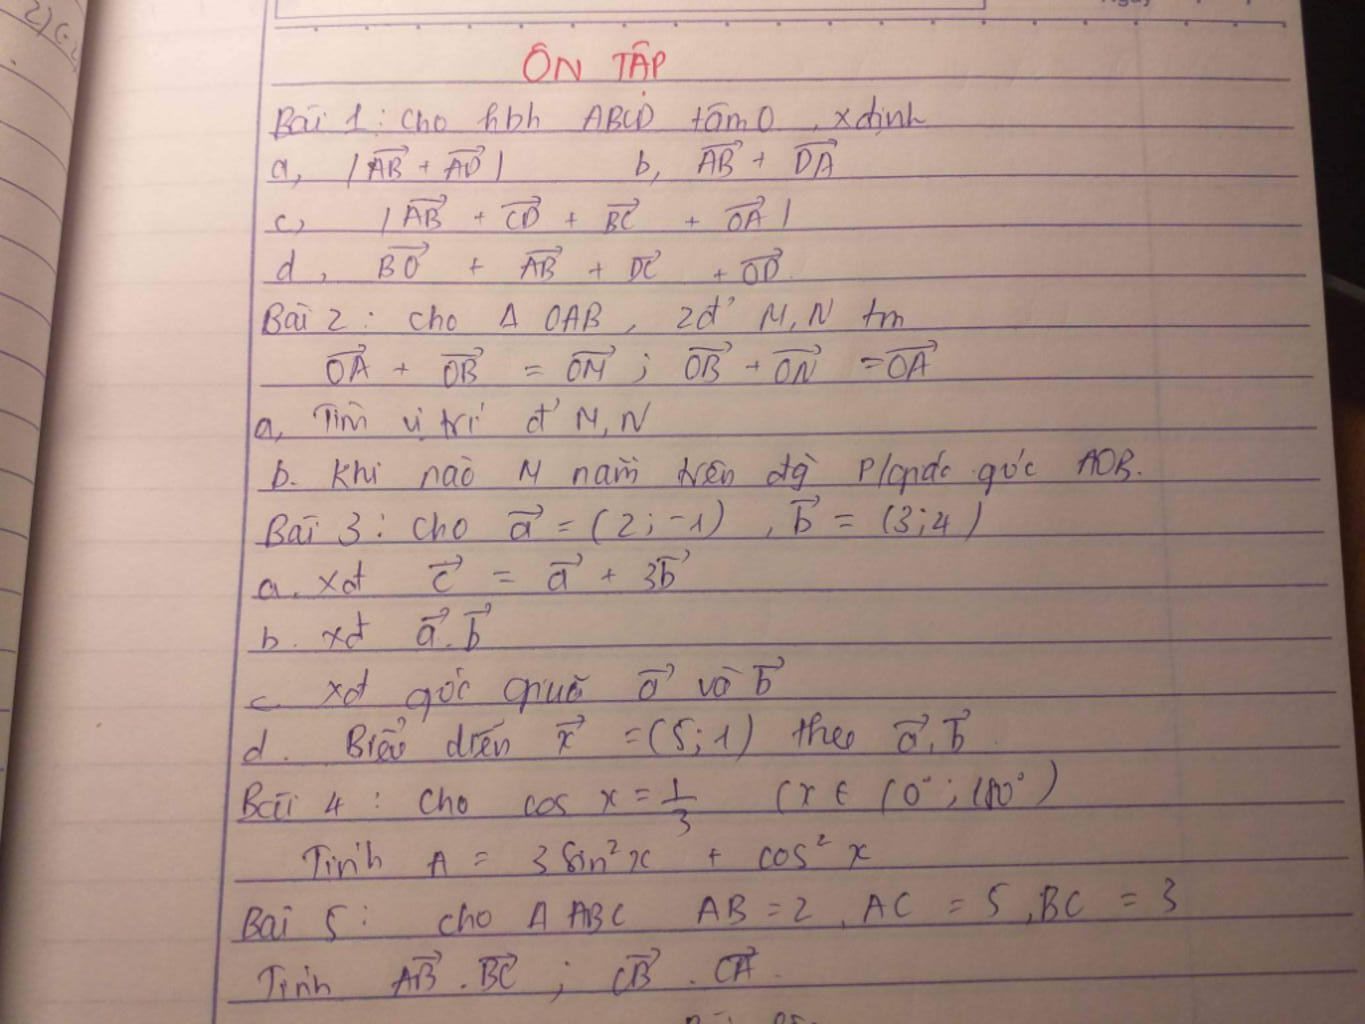 ÔN TẬP
Bài 1: Cho hbh ABCD tâm O, xđịnh
a, |AB⃗ + AD⃗| b, AB⃗ + DA⃗
c, |AB⃗ + CD⃗ + BC⃗ + OA⃗|
d, BO⃗ + AB⃗ + DC⃗ + OD⃗.
Bài 2: cho Δ OAB, 2đ' M, N tm
OA⃗ + OB⃗ = OM⃗ ; OB⃗ + ON⃗ = OA⃗
a, Tìm vị trí đ' M, N
b. Khi nào M nằm trên đg P/giác góc AOB.
Bài 3: Cho a⃗ = (2; -1), b⃗ = (3; 4)
a. xđ c⃗ = a⃗ + 3b⃗
b. xđ a⃗.b⃗
c. xđ góc giữa a⃗ và b⃗
d. Biểu diễn x⃗ = (5; 1) theo a⃗, b⃗
Bài 4: Cho cos x = 1/3 (x ∈ (0°; 180°)
Tính A = 3 sin² x + cos² x
Bài 5: cho Δ ABC AB = 2, AC = 5, BC = 3
Tính AB⃗ . BC⃗ ; CB⃗ . CA⃗.